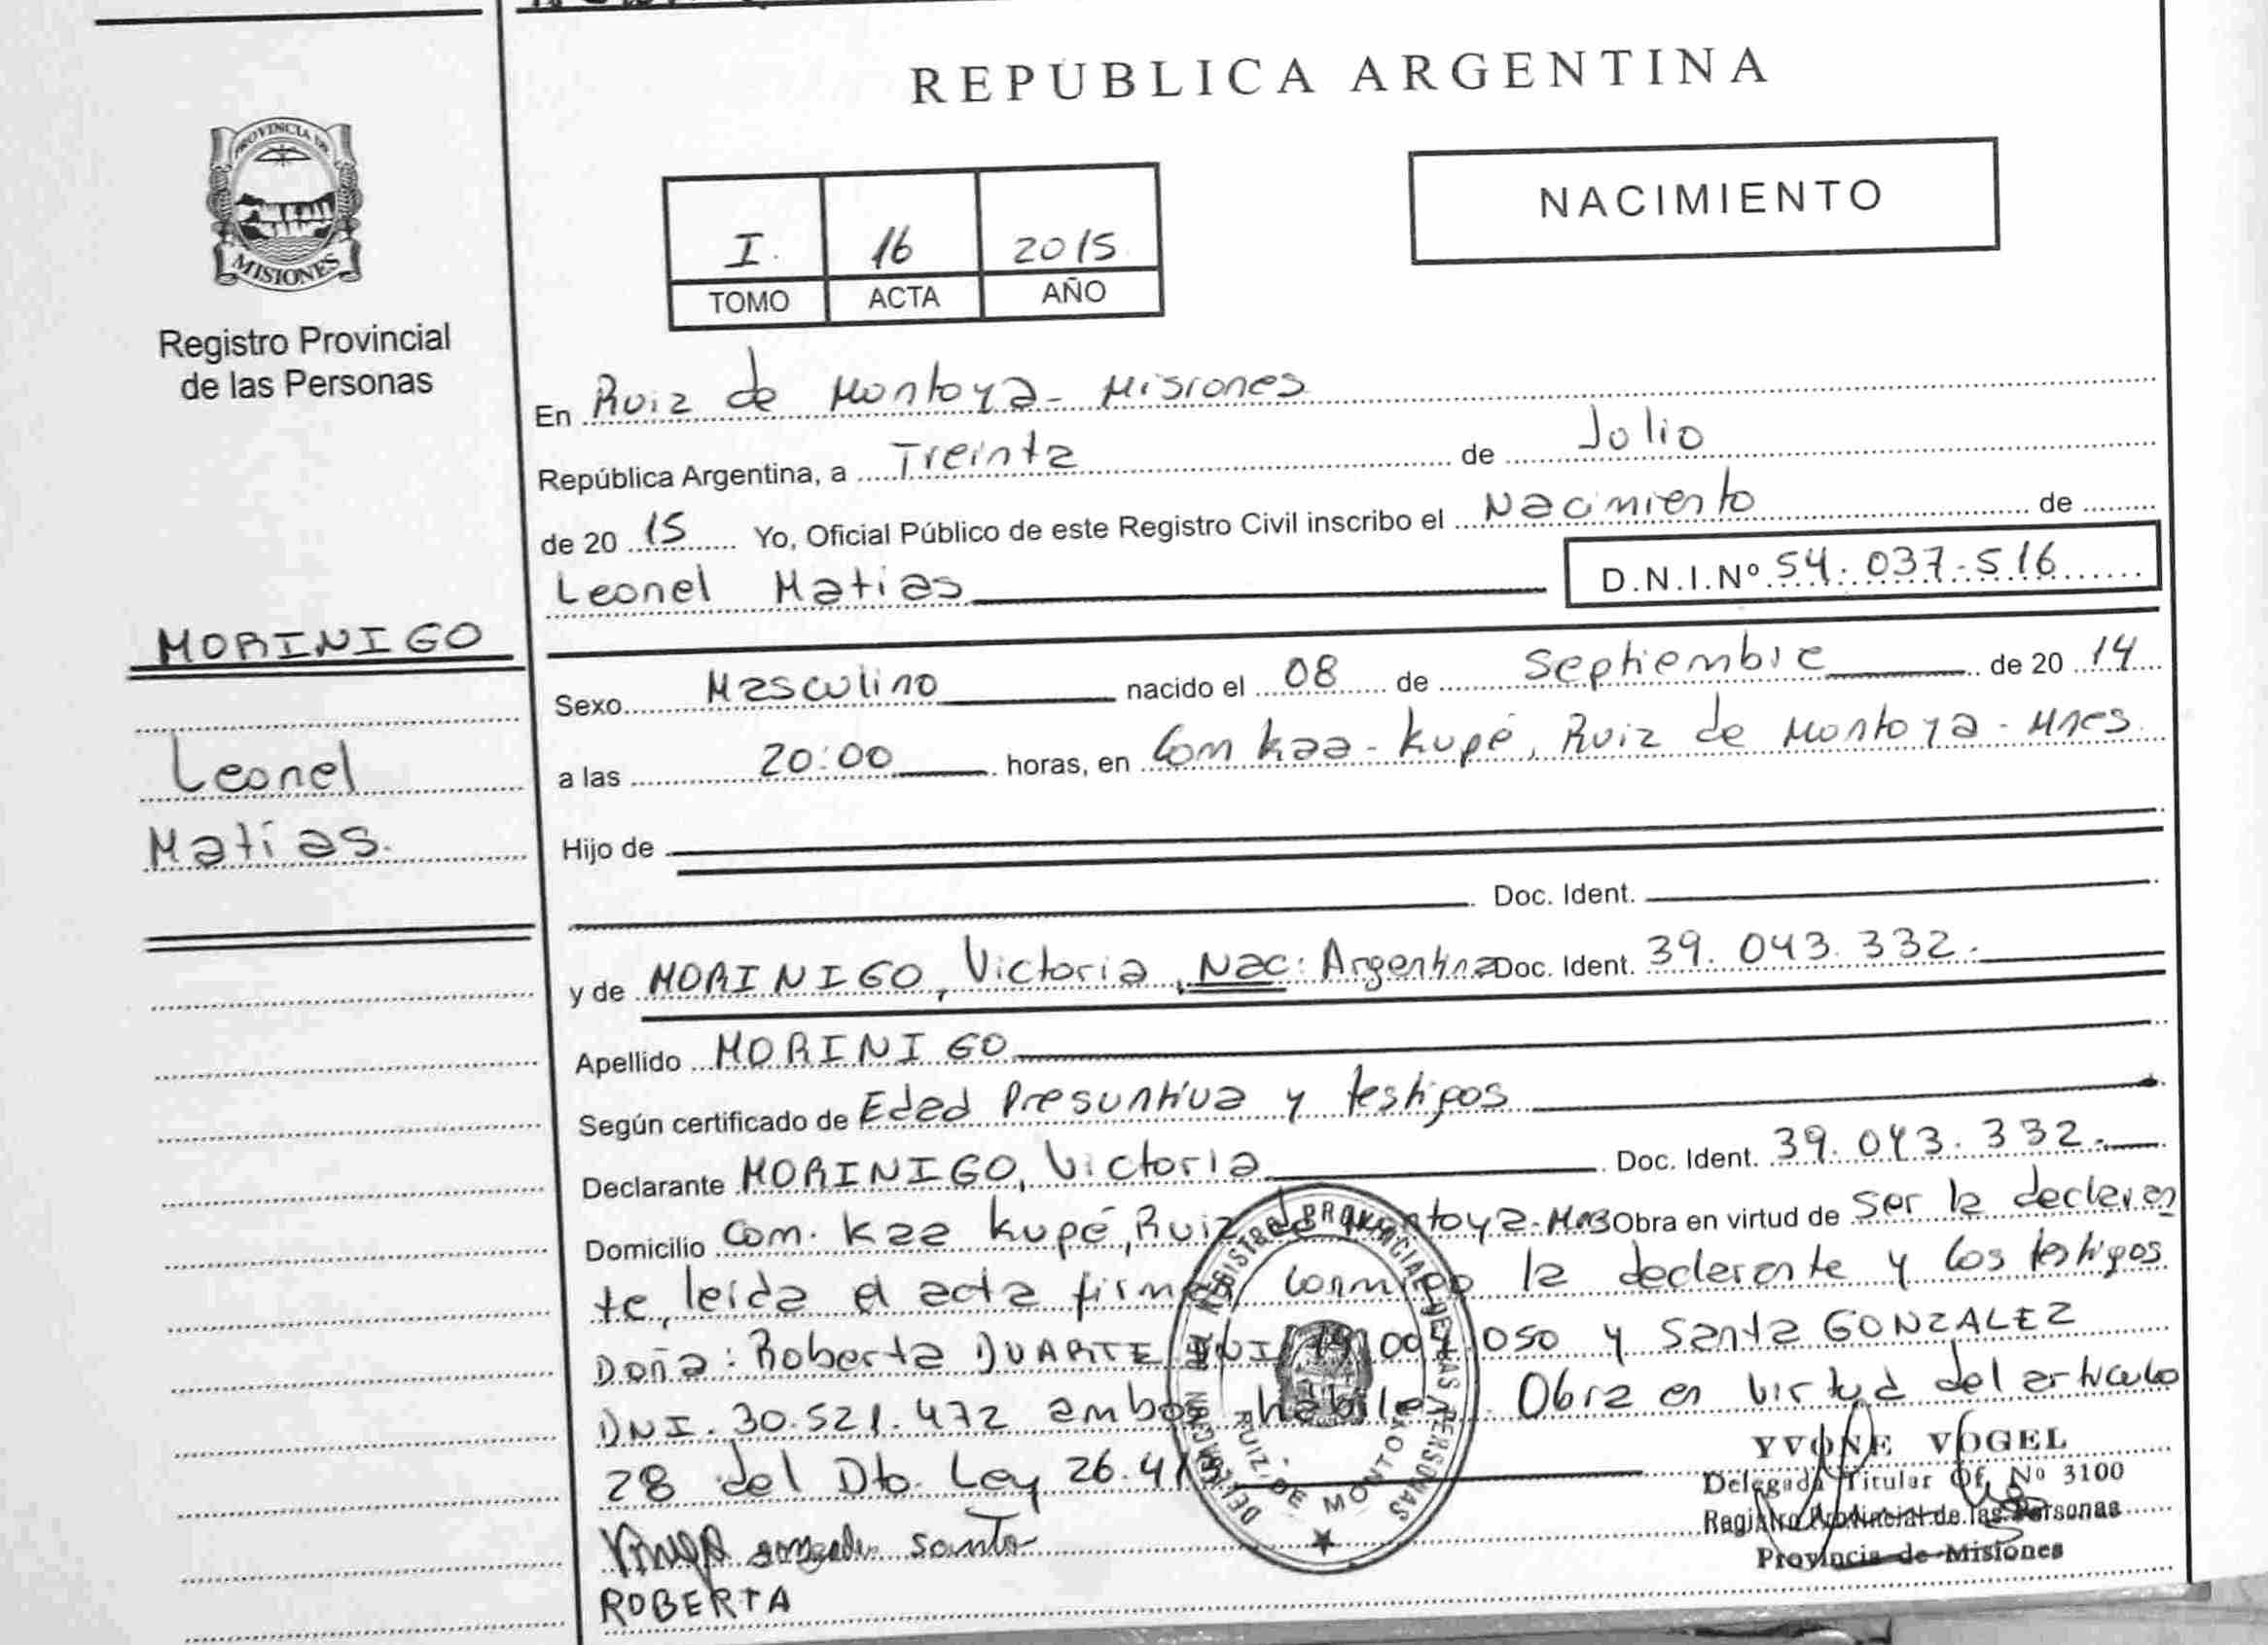 REPUBLICA ARGENTINA
PROVINCIA DE
MISIONES
Registro Provincial
de las Personas
NACIMIENTO
I. 16 2015
TOMO ACTA AÑO
En Ruiz de Montoya - Misiones
República Argentina, a Treinta de Julio
de 20 15 Yo, Oficial Público de este Registro Civil inscribo el Nacimiento de
Leonel Matias D.N.I.Nº 54.037.516
MORINIGO
Leonel
Matías.
Sexo Masculino nacido el 08 de Septiembre de 20 14
a las 20:00 horas, en Com Kaa-Kupé, Ruiz de Montoya - Mnes.
Hijo de
Doc. Ident.
y de MORINIGO, Victoria, Nac: Argentina Doc. Ident. 39.043.332.
Apellido MORINIGO
Según certificado de Edad Presuntiva y testigos
Declarante MORINIGO, Victoria Doc. Ident. 39.043.332.
Domicilio Com. Kaa Kupé, Ruiz de Montoya - Obra en virtud de ser la declaran
te, leída el acta firma conmigo la declarante y los testigos
Doña: Roberta DUARTE DNI y Santa GONZALEZ
DNI. 30.521.472 ambos hábiles. Obra en virtud del artículo
28 del Dto. Ley
santa
ROBERTA
DELEGACION REGISTRO PROVINCIAL DE LAS PERSONAS
RUIZ DE MONTOYA
YVONE VOGEL
Delegada Titular Of. Nº 3100
Registro Provincial de las Personas
Provincia de Misiones